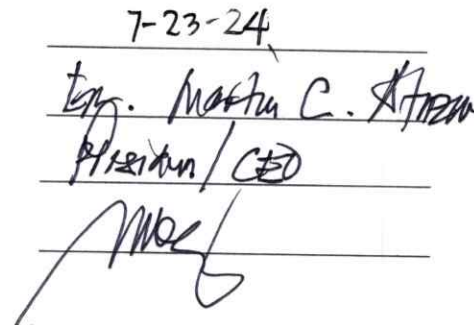 7-23-24
Eng. Martin C.
President / CEO